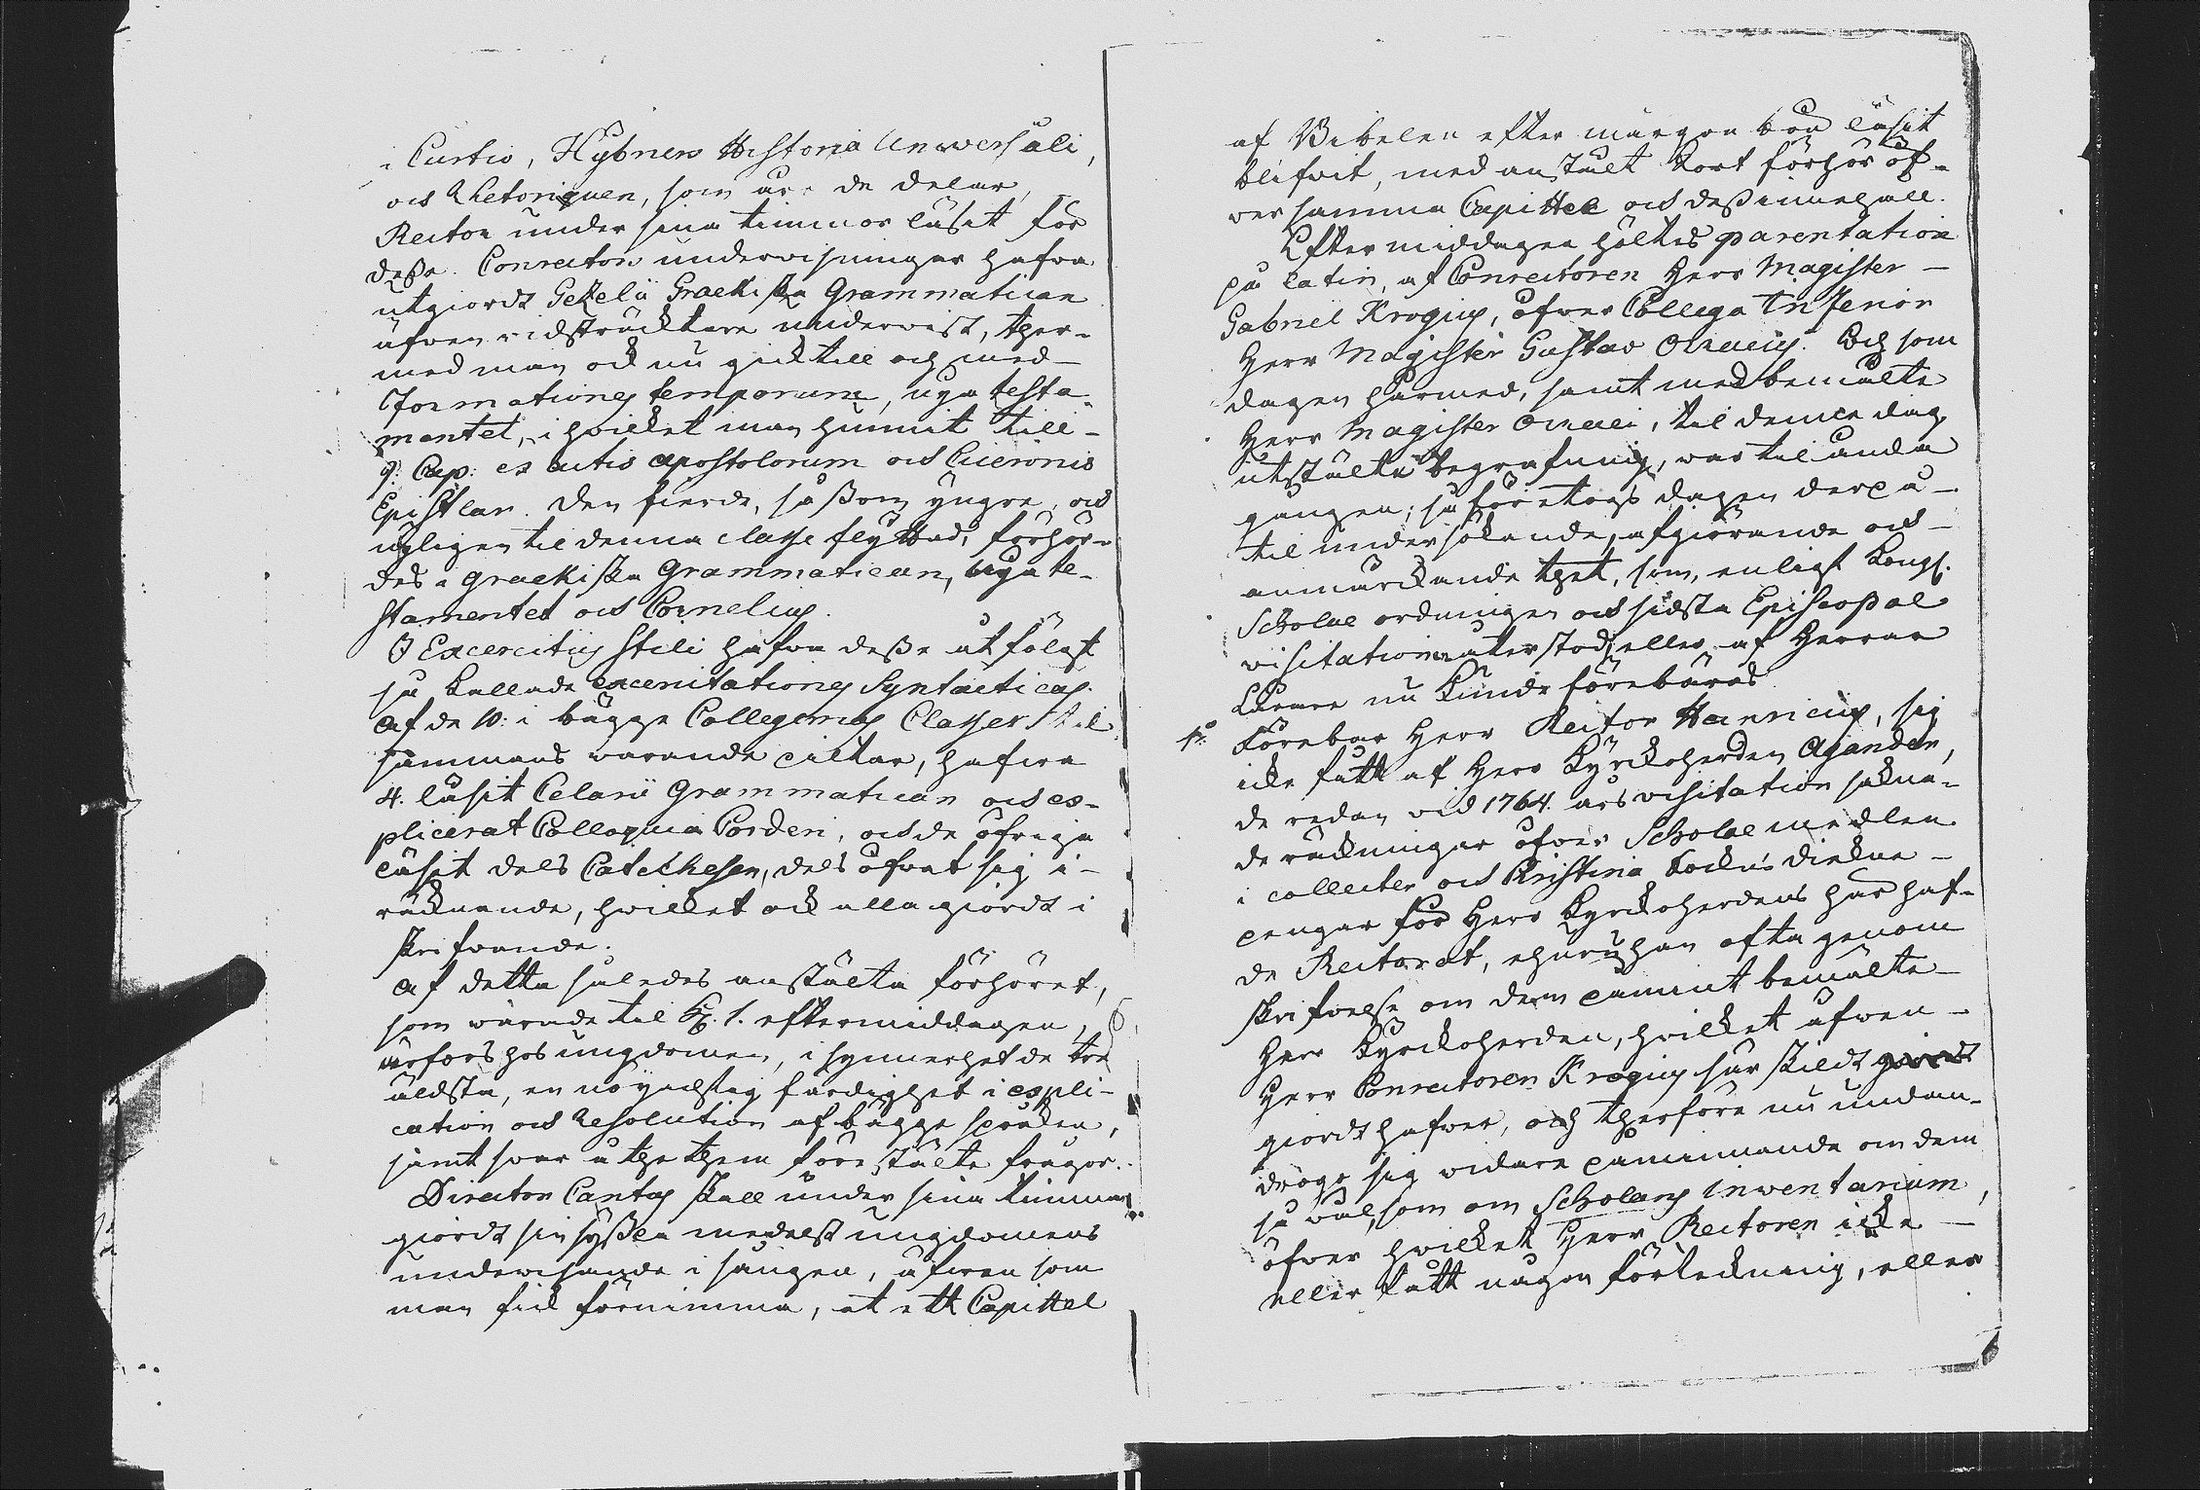 i Curtio, Hybners Historia Universali,
och Rhetoriquen, som äro de delar,
Rector under sina timmar läsit för
deßa. Conrectors underwisningar hafva
utgiordt Gezelii Graekiska Grammatican
äfven widsträcktare underwist, ther-
med man ock nu gick till och med
formationes temporum, nya testa-
mentet, i hvilket man hunnit till
9: Cap: ex actis apostolorum och Ciceronis
Epistlar. Den fierde, såßom yngre, och
nyligen til denna classe flyttad, förhör-
des i graekiska Grammatican, nya te-
stamentet och Cornelius.
I Excercitiis stili hafva deße utfölgt
så kallade excercitationes Syntacticas.
Af de 10: i bägge Collegornas Classer til-
sammans warande piltar, hafva
4. läsit Celarii Grammatican och ex-
plicerat Colloquia Corderi, och de öfriga
läsit dels Catechesen, dels öfvat sig i
räknande, hvilket ock alla giordt i
skrifvande.
Af detta således anstälta förhöret,
som warade til Kl. 1. eftermiddagen,
erfors hos ungdomen, i synnerhet de tre
äldsta, en nöyachtig färdighet i expli-
cation och Resolution af bägge språken,
samt svar å the them förestälte frågor.
Director Cantus skall under sina timmar
giordt sin syßla medelst ungdomens
underwisande i sången, äfven som
man fick förnimma, at ett Capittel
af Bibelen efter morgon bön läsit
blifvit, med anstält kort förhör öf-
wer samma Capittel och deß innehåll.
Eftermiddagen höltes parentation
på latin, af Conrectoren Herr Magister
Gabriel Krogius, öfwer Collega Inferior
Herr Magister Gustav Omenius. Och som
dagen härmed, samt med bemälte
Herr Magister Omenii, til denna dag
utstälta begrafning, war til ända
gången; så företogs dagen derpå
til undersökande, afgiörande och
anmärckande thet, som, enligt Kongl.
Scholae ordningen och sidsta Episcopal
visitation återstod, eller af Herrar
Lärare nu kunde förebäras.
1:o Förebar Herr Rector Heinricius, sig
icke fått af Herr Kyrckoherden Ajander,
de redan vid 1764. års visitation sakna-
de räckningar öfver Scholae medlen
i collecter och Kristina Sockns diekne-
pengar för Herr Kyrckoherdens här haf-
de Rectorat, ehuru han ofta genom
skrifvelse om dem påmint bemälte
Herr Kyrckoherden, hvilket äfven
Herr Conrectoren Krogius särskildt
giordt hafver, och therföre nu undan-
drogo sig widare påminnande om dem
så väl, som om Scholans Inventarium,
öfver hvilket Herr Rectoren icke
eller fått någon förteckning, eller